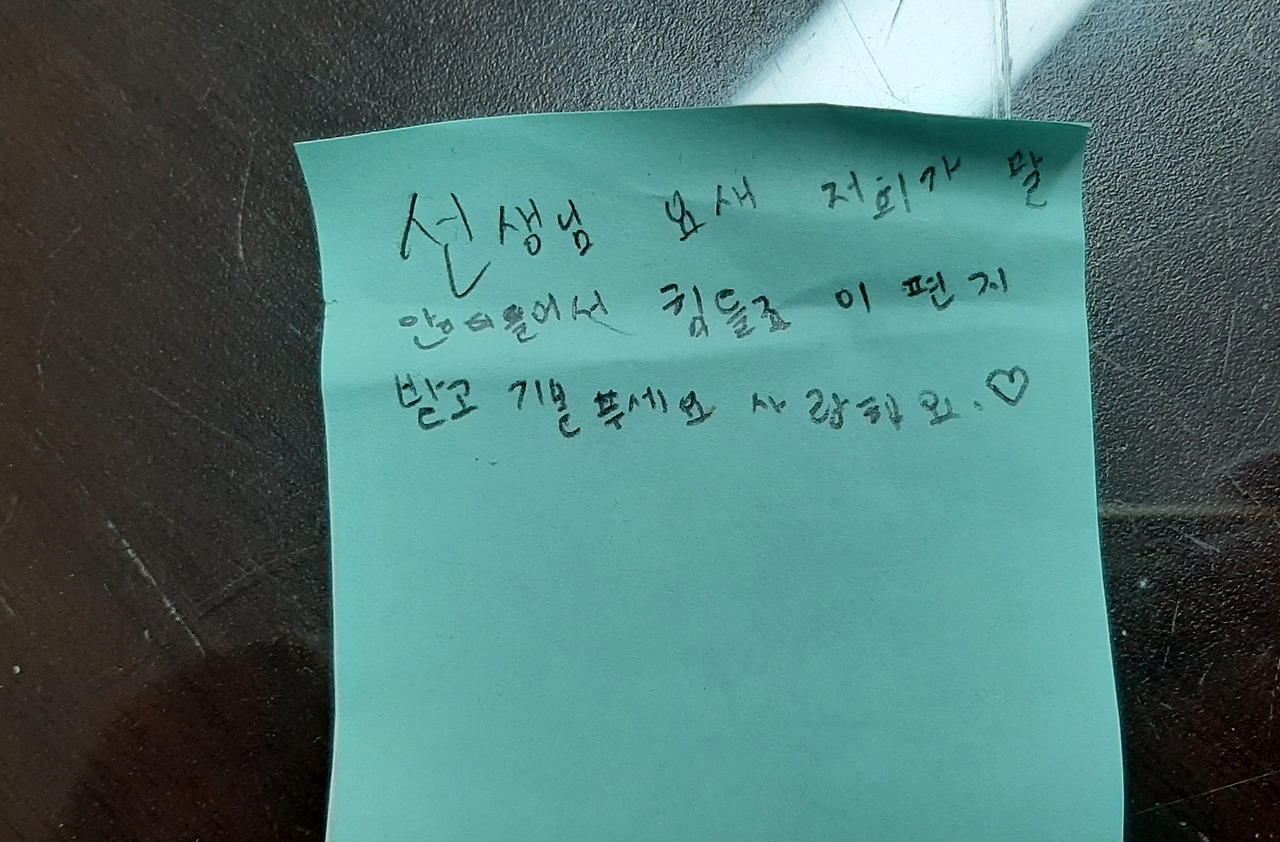 선생님 요새 저희가 말
안들어서 힘들죠 이 편지
받고 기분 푸세요 사랑해요.♡